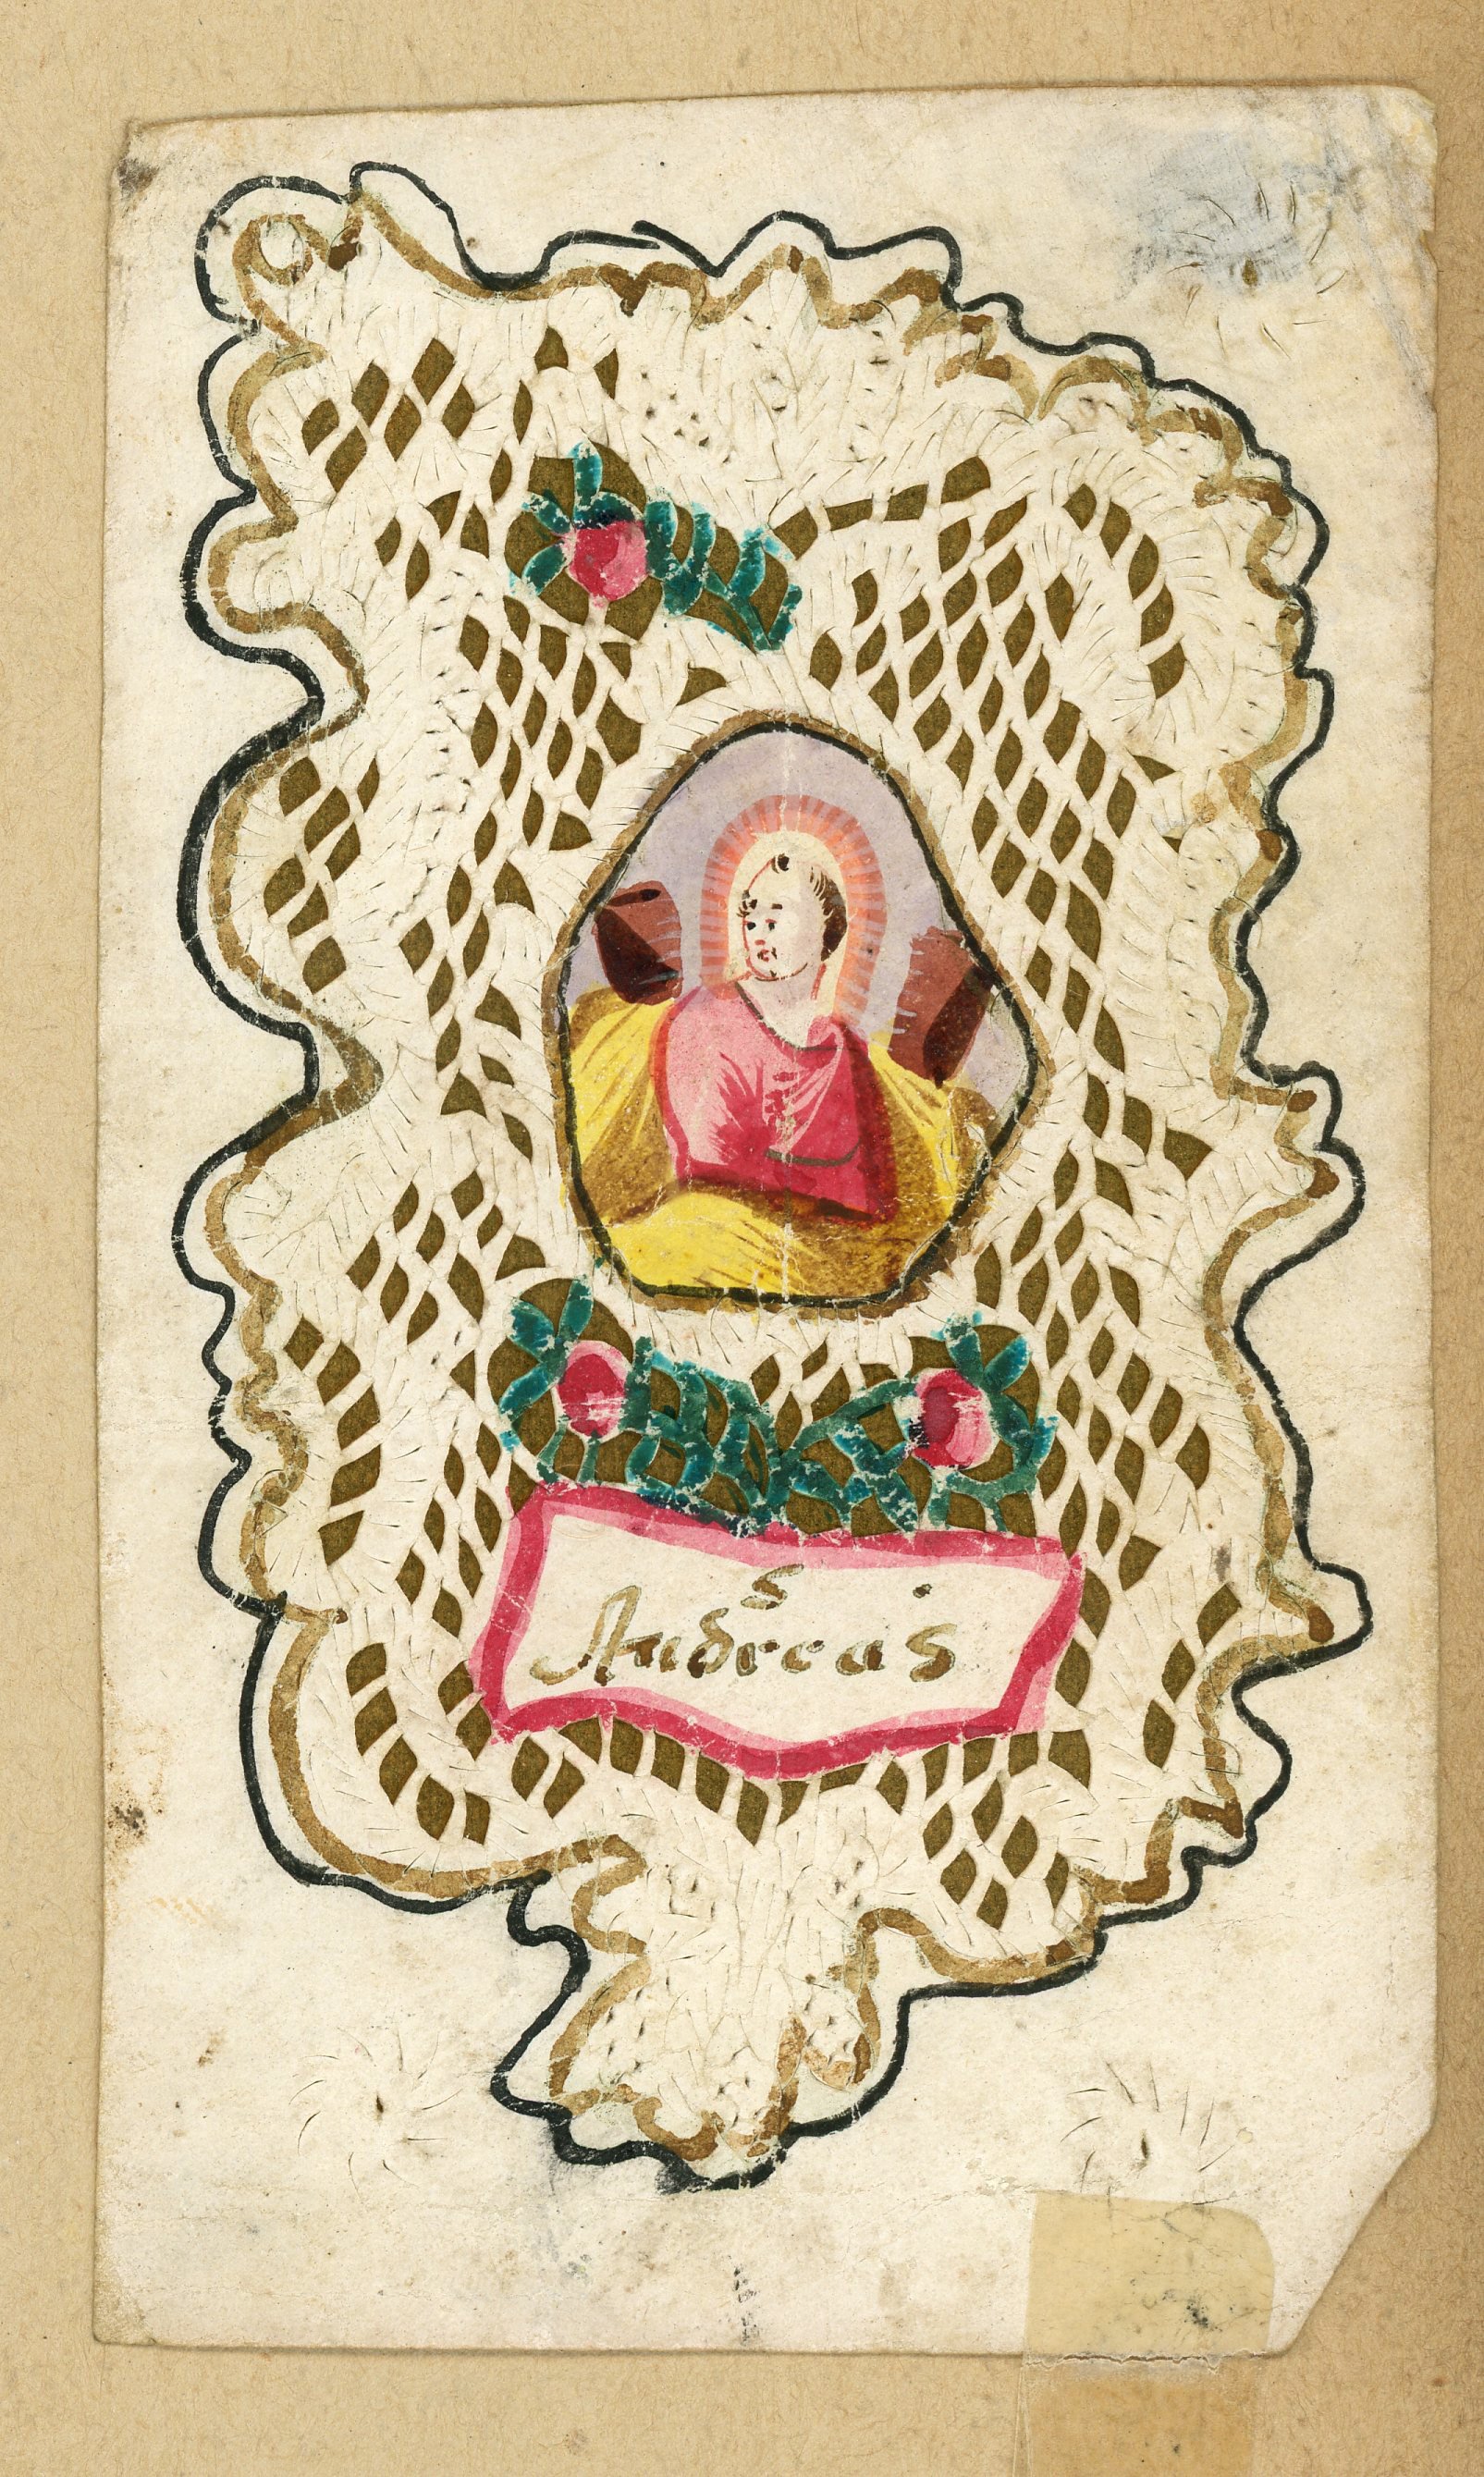 S
Andreas